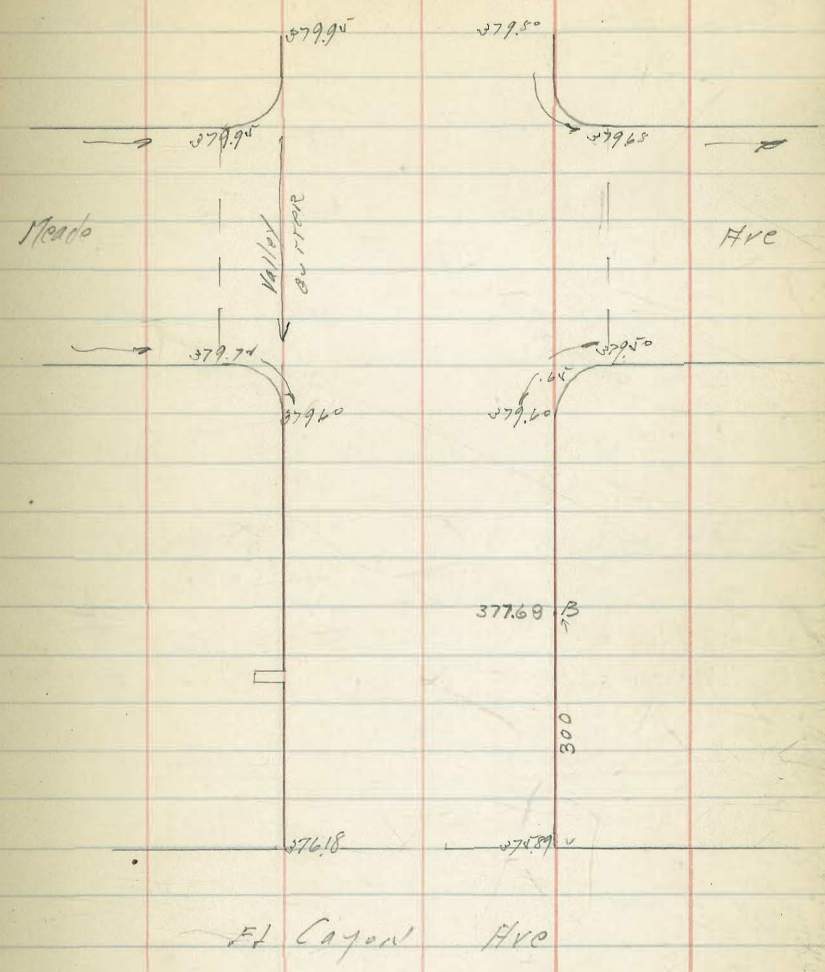 379.95 379.80
379.95 379.68
Meade Valley Gutter Ave
379.72 379.50
.65
379.60 379.60
377.68 B
300
376.18 375.89
El Cajon Ave